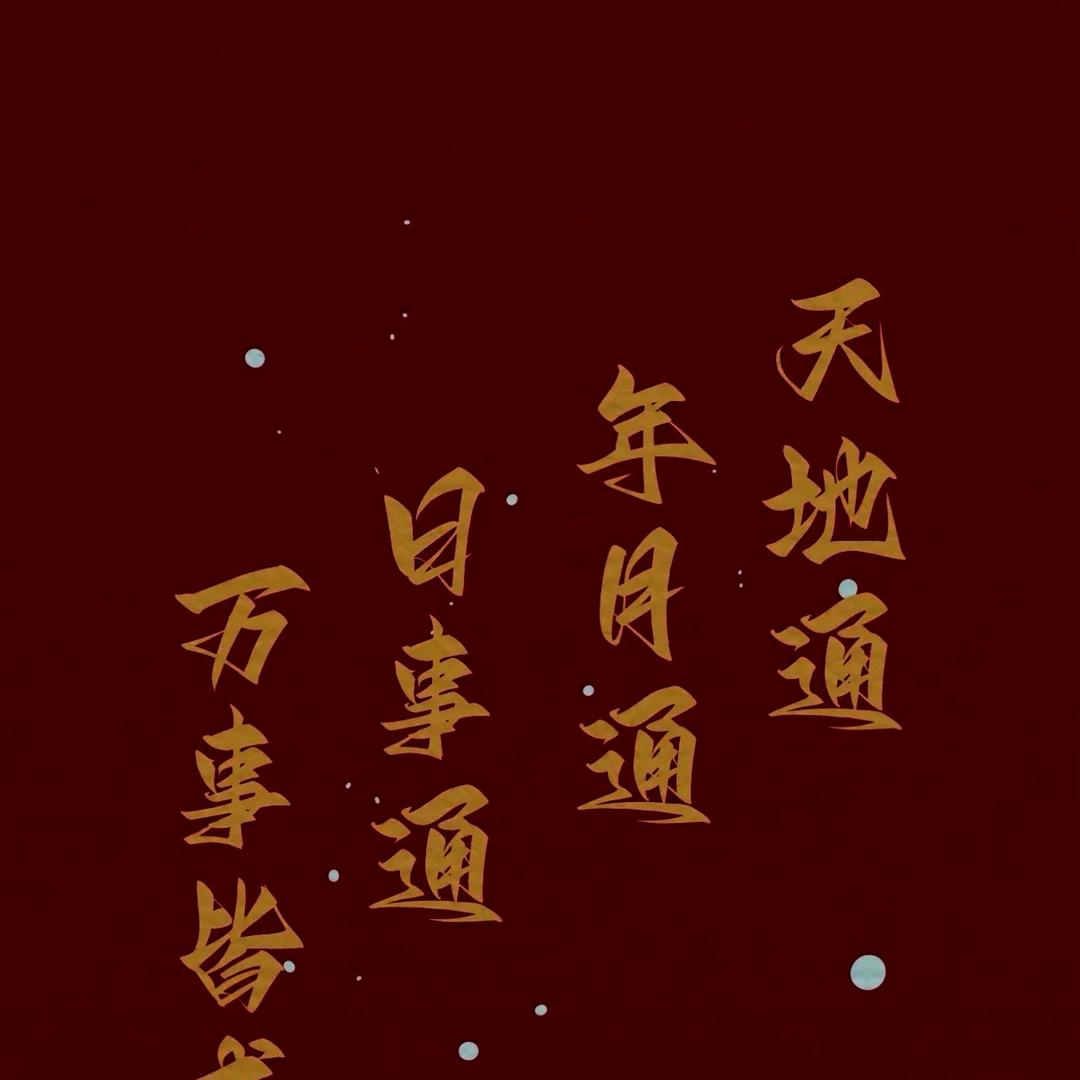 天地通
年月通
日事通
万事皆